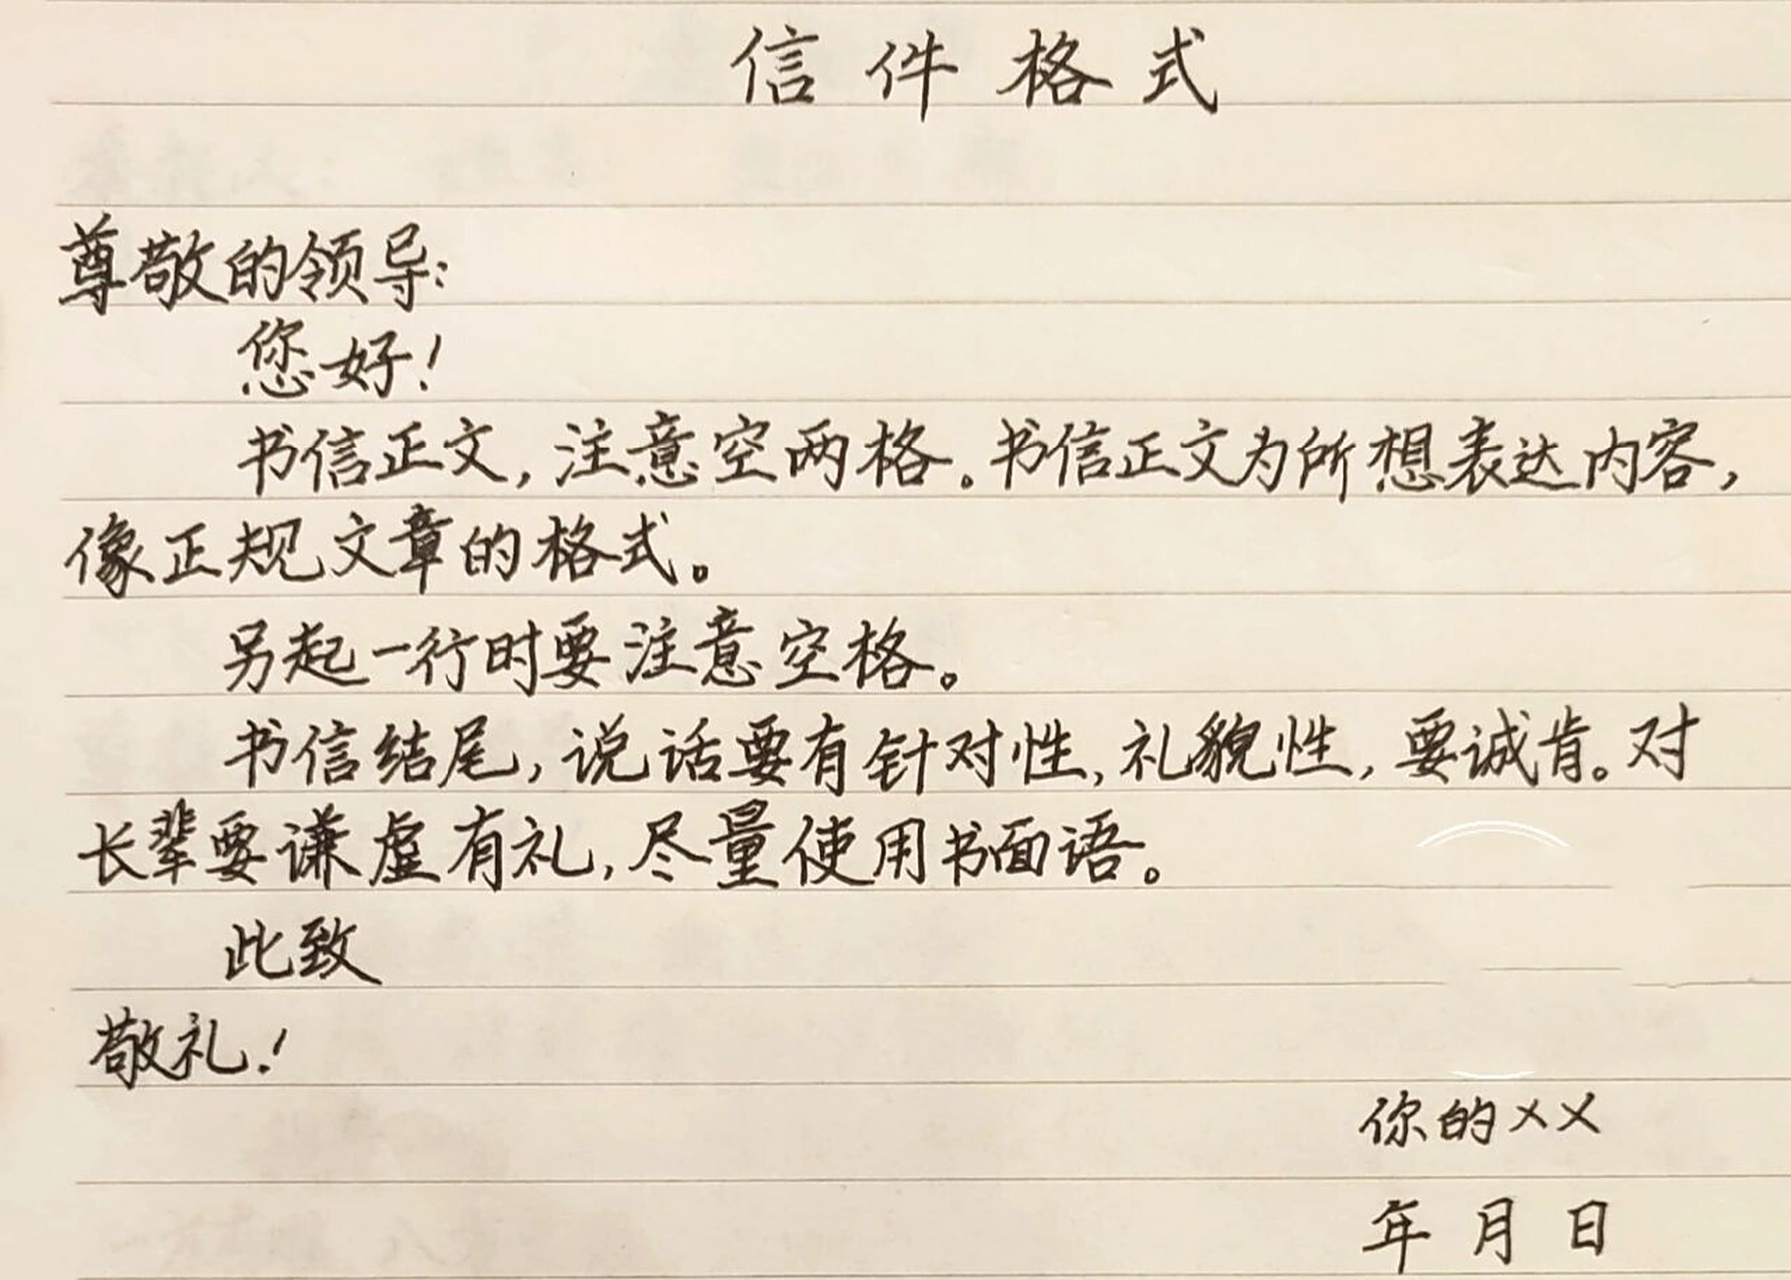 信件格式
尊敬的领导:
您好!
书信正文,注意空两格。书信正文为所想表达内容,
像正规文章的格式。
另起一行时要注意空格。
书信结尾,说话要有针对性,礼貌性,要诚肯。对
长辈要谦虚有礼,尽量使用书面语。
此致
敬礼!
你的××
年 月 日